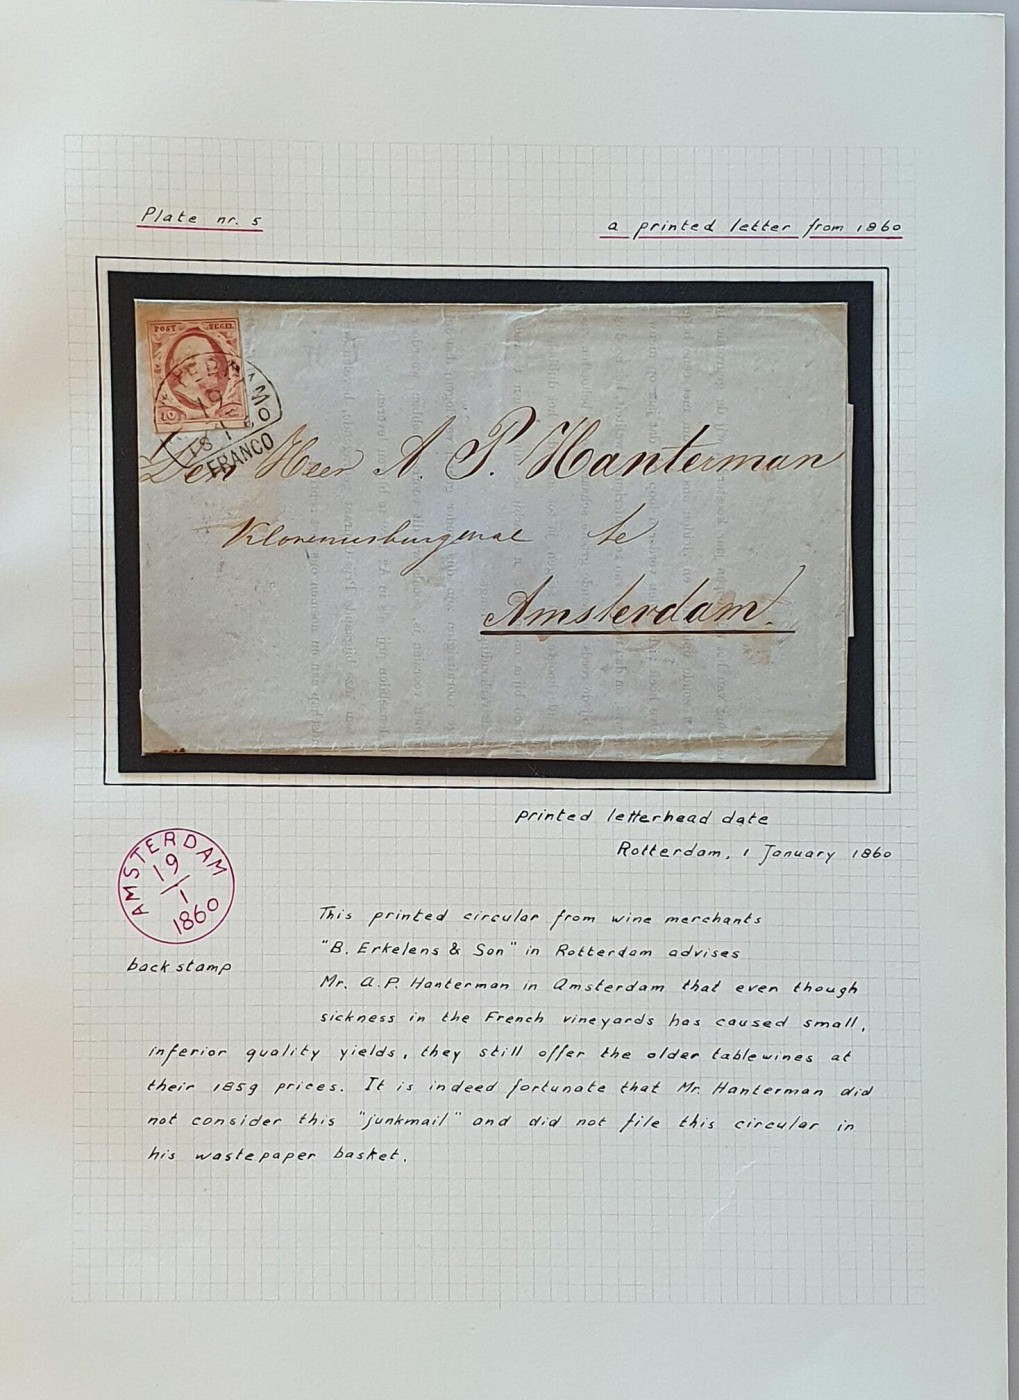 Plate nr. 5
a printed letter from 1860
POST ZEGEL
AMSTERDAM
19
1
1860
FRANCO
Den Heer A. P. Hanterman
te
Amsterdam.
printed letterhead date
Rotterdam, 1 January 1860
AMSTERDAM
19
1
1860
back stamp
This printed circular from wine merchants
"B. Erkelens & Son" in Rotterdam advises
Mr. A.P. Hanterman in Amsterdam that even though
sickness in the French vineyards has caused small,
inferior quality yields, they still offer the older tablewines at
their 1859 prices. It is indeed fortunate that Mr. Hanterman did
not consider this "junkmail" and did not file this circular in
his wastepaper basket.